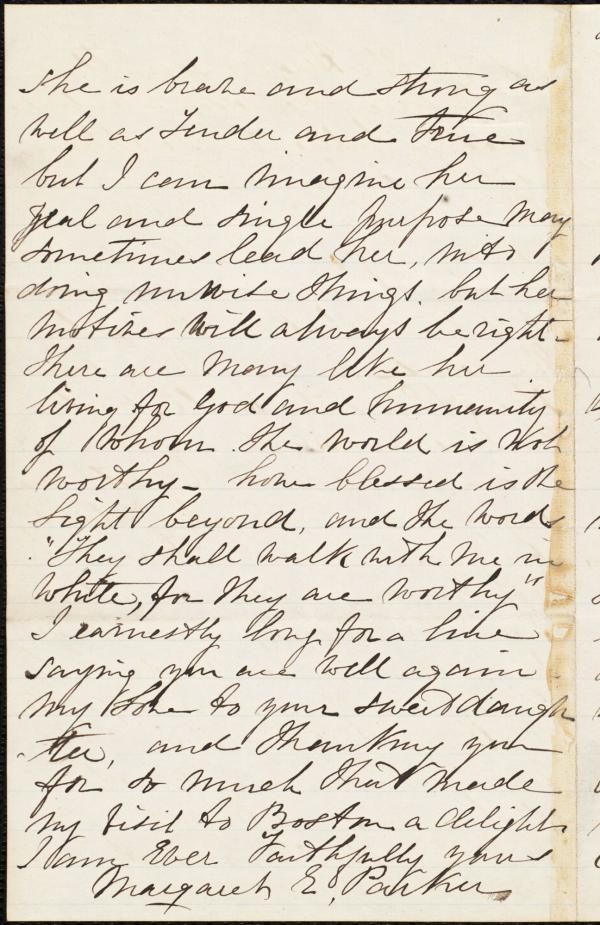 she is brave and strong as
well as tender and true
but I can imagine her
zeal and single purpose may
sometimes lead her, into
doing unwise things, but her
motives will always be right -
There are many like her
living for God and humanity
of whom the world is not
worthy - how blessed is the
light beyond, and the words
"They shall walk with me in
white, for they are worthy"
I earnestly long for a line
saying you are well again
my love to your sweet daugh
-ter, and thanking you
for so much that made
my visit to Boston a delight
I am Ever Faithfully yours
Margaret E. Parker